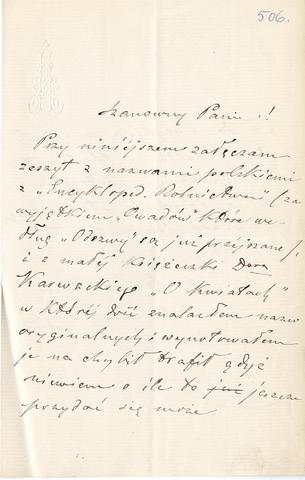 506.
Szanowny Panie !!
Przy niniéjszem załączam
zeszyt z nazwami polskiemi
z „Encyklopd. Rolnictwa" (za
wyjątkiem „Owadów" które we-
dług „Odezwy" są już przejrzane),
i z małéj książeczki Dora
Karwackiego „O kwiatach"
w któréj dość znalazłem nazw
oryginalnych i wynotowałem
je na chybił trafił gdyż
niewiem o ile to już jeszcze
przydać się może.